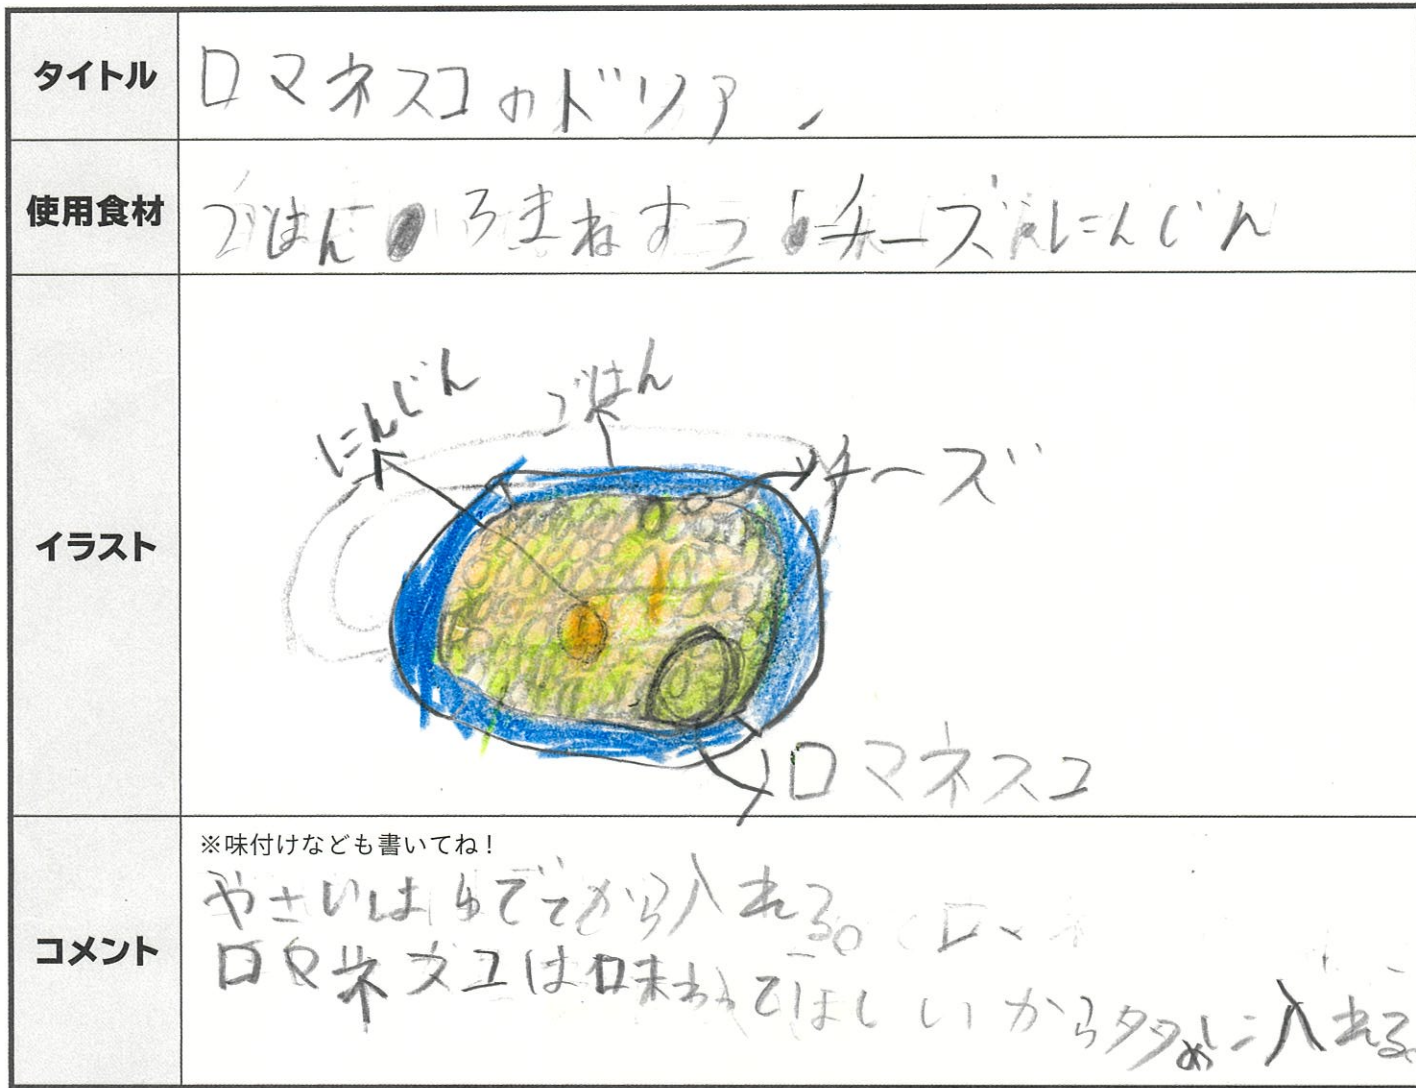 タイトル
ロマネスコのドリア
使用食材
ごはん・ろまねすこ・チーズ・にんじん
イラスト
にんじん
ごはん
チーズ
ロマネスコ
コメント
※味付けなども書いてね!
やさいはゆでてから入れる。
ロマネスコは味わってほしいから多めに入れる。